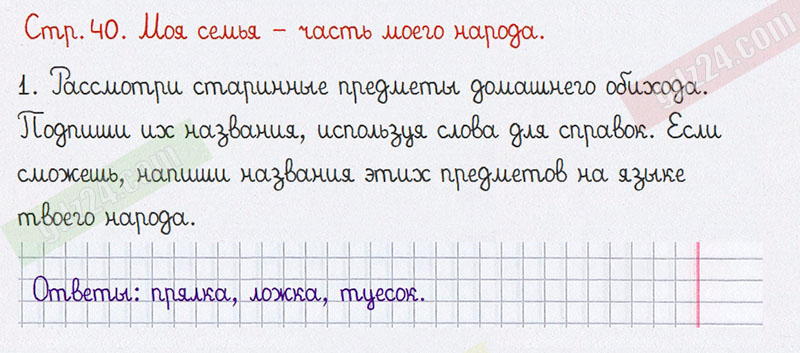 Стр. 40. Моя семья – часть моего народа.
gdz24.com
1. Рассмотри старинные предметы домашнего обихода.
Подпиши их названия, используя слова для справок. Если
сможешь, напиши названия этих предметов на языке
твоего народа.
gdz24.com
Ответы: прялка, ложка, туесок.